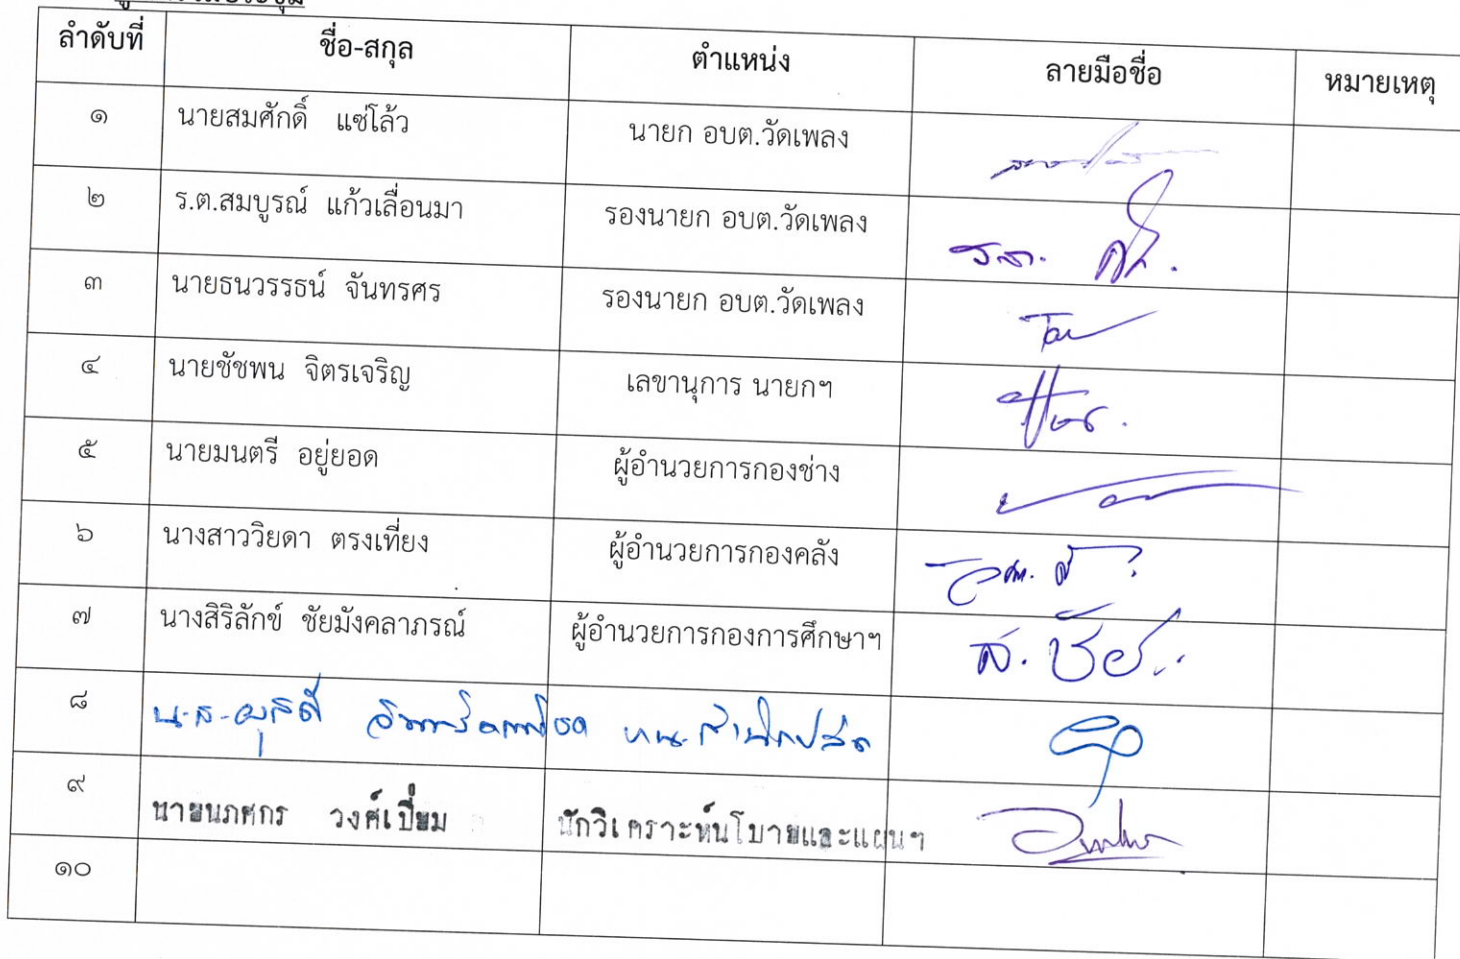 ลำดับที่ ชื่อ-สกุล ตำแหน่ง ลายมือชื่อ หมายเหตุ
๑ นายสมศักดิ์ แซ่โล้ว นายก อบต.วัดเพลง
๒ ร.ต.สมบูรณ์ แก้วเลื่อนมา รองนายก อบต.วัดเพลง
๓ นายธนวรรธน์ จันทรศร รองนายก อบต.วัดเพลง
๔ นายชัชพน จิตรเจริญ เลขานุการ นายกฯ
๕ นายมนตรี อยู่ยอด ผู้อำนวยการกองช่าง
๖ นางสาววิยดา ตรงเที่ยง ผู้อำนวยการกองคลัง
๗ นางสิริลักข์ ชัยมังคลาภรณ์ ผู้อำนวยการกองการศึกษาฯ ส. ชัย
๘ น.ส. หน.สำนักปลัด
๙ นายนภศกร วงศ์เปี่ยม นักวิเคราะห์นโบายและแผนฯ
๑๐